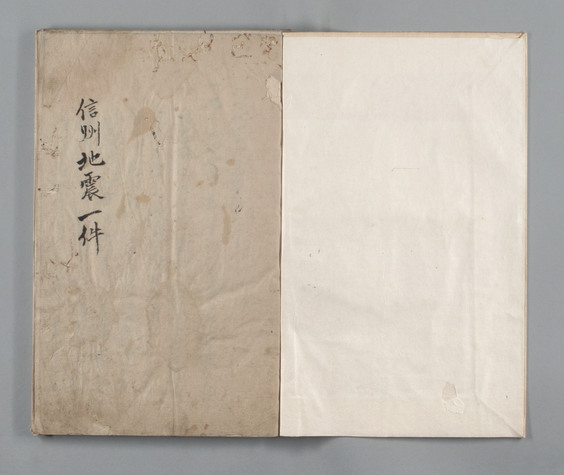 信州地震一件